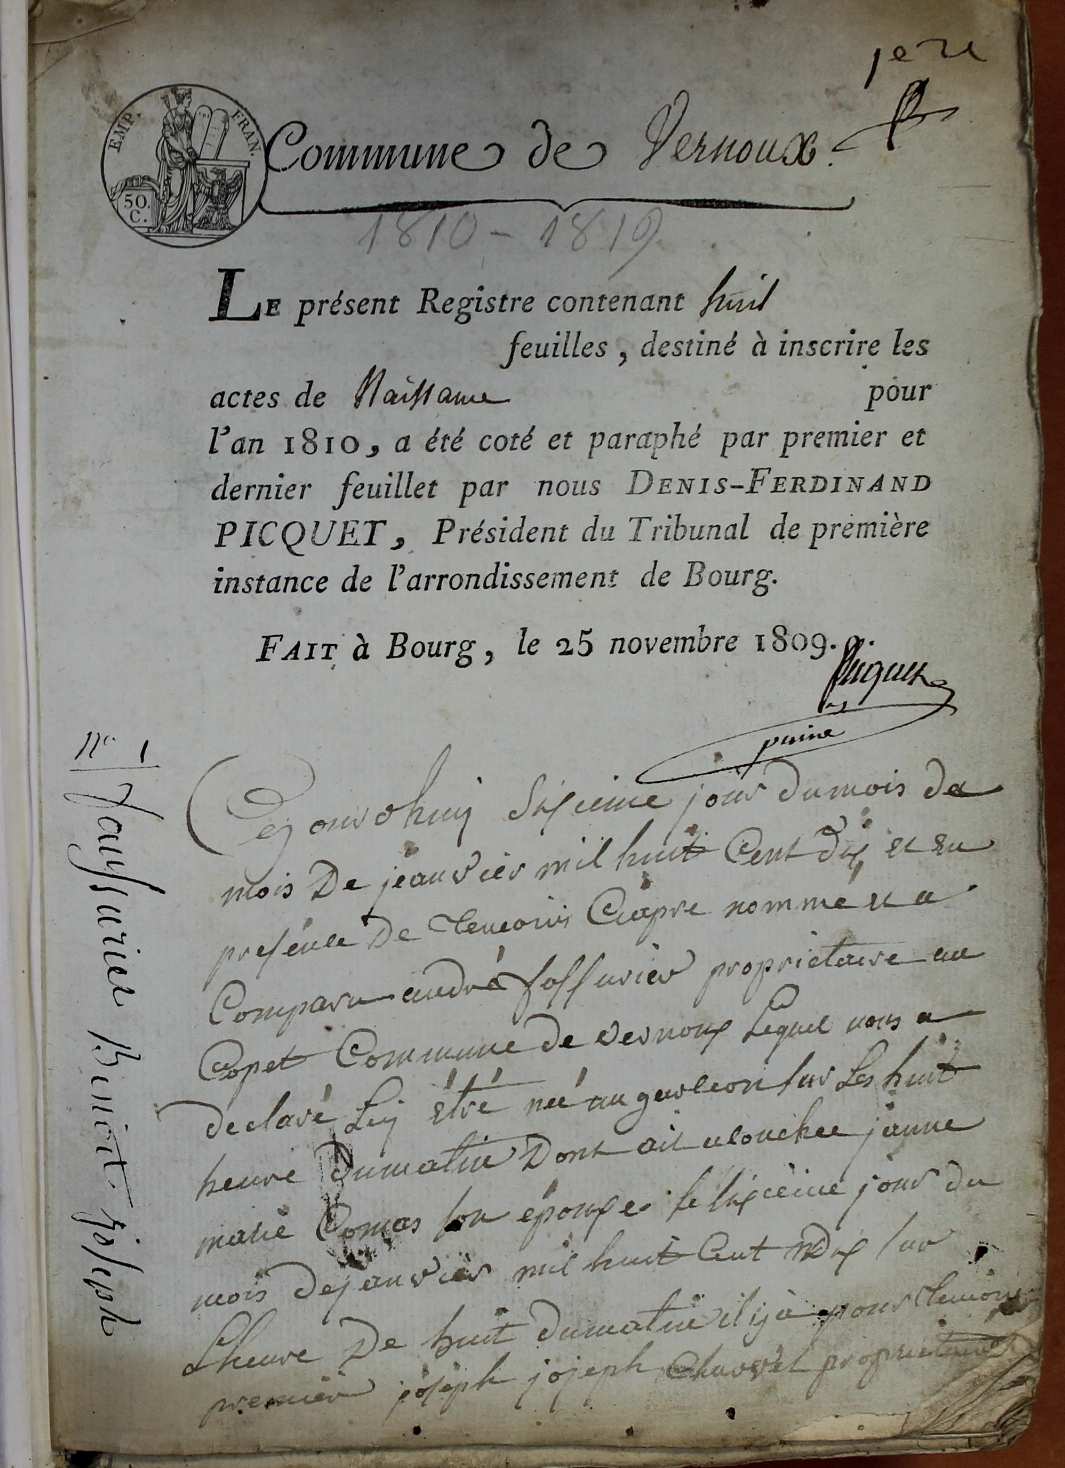 1er
EMP. FRAN.
50. C.
Commune de Vernoux.
1810 - 1819
LE présent Registre contenant huit
feuilles, destiné à inscrire les
actes de Naissance pour
l'an 1810, a été coté et paraphé par premier et
dernier feuillet par nous DENIS-FERDINAND
PICQUET, Président du Tribunal de première
instance de l'arrondissement de Bourg.
FAIT à Bourg, le 25 novembre 1809.
Picquet
No 1
faussurier Benoit joseph
Cejourdhuy sixieme jour dumois de
mois De jeanvier mil huit Cent dix et en
presence De temoins Ciapre nommé et a
Comparu andré fossurier proprietaire au
Copet Commune de vernoux Lequel nous a
déclaré Luy étré née un garsson sur Les huit
heure Dumatin Dont ait alouchee janne
marie Comas son épouxe le sixcieme jour du
mois dejanvier mil huit Cent Dix sur
Lheure De huit dumatin il ya pour temoins
premier joseph jojeph Chavvet proprietaire